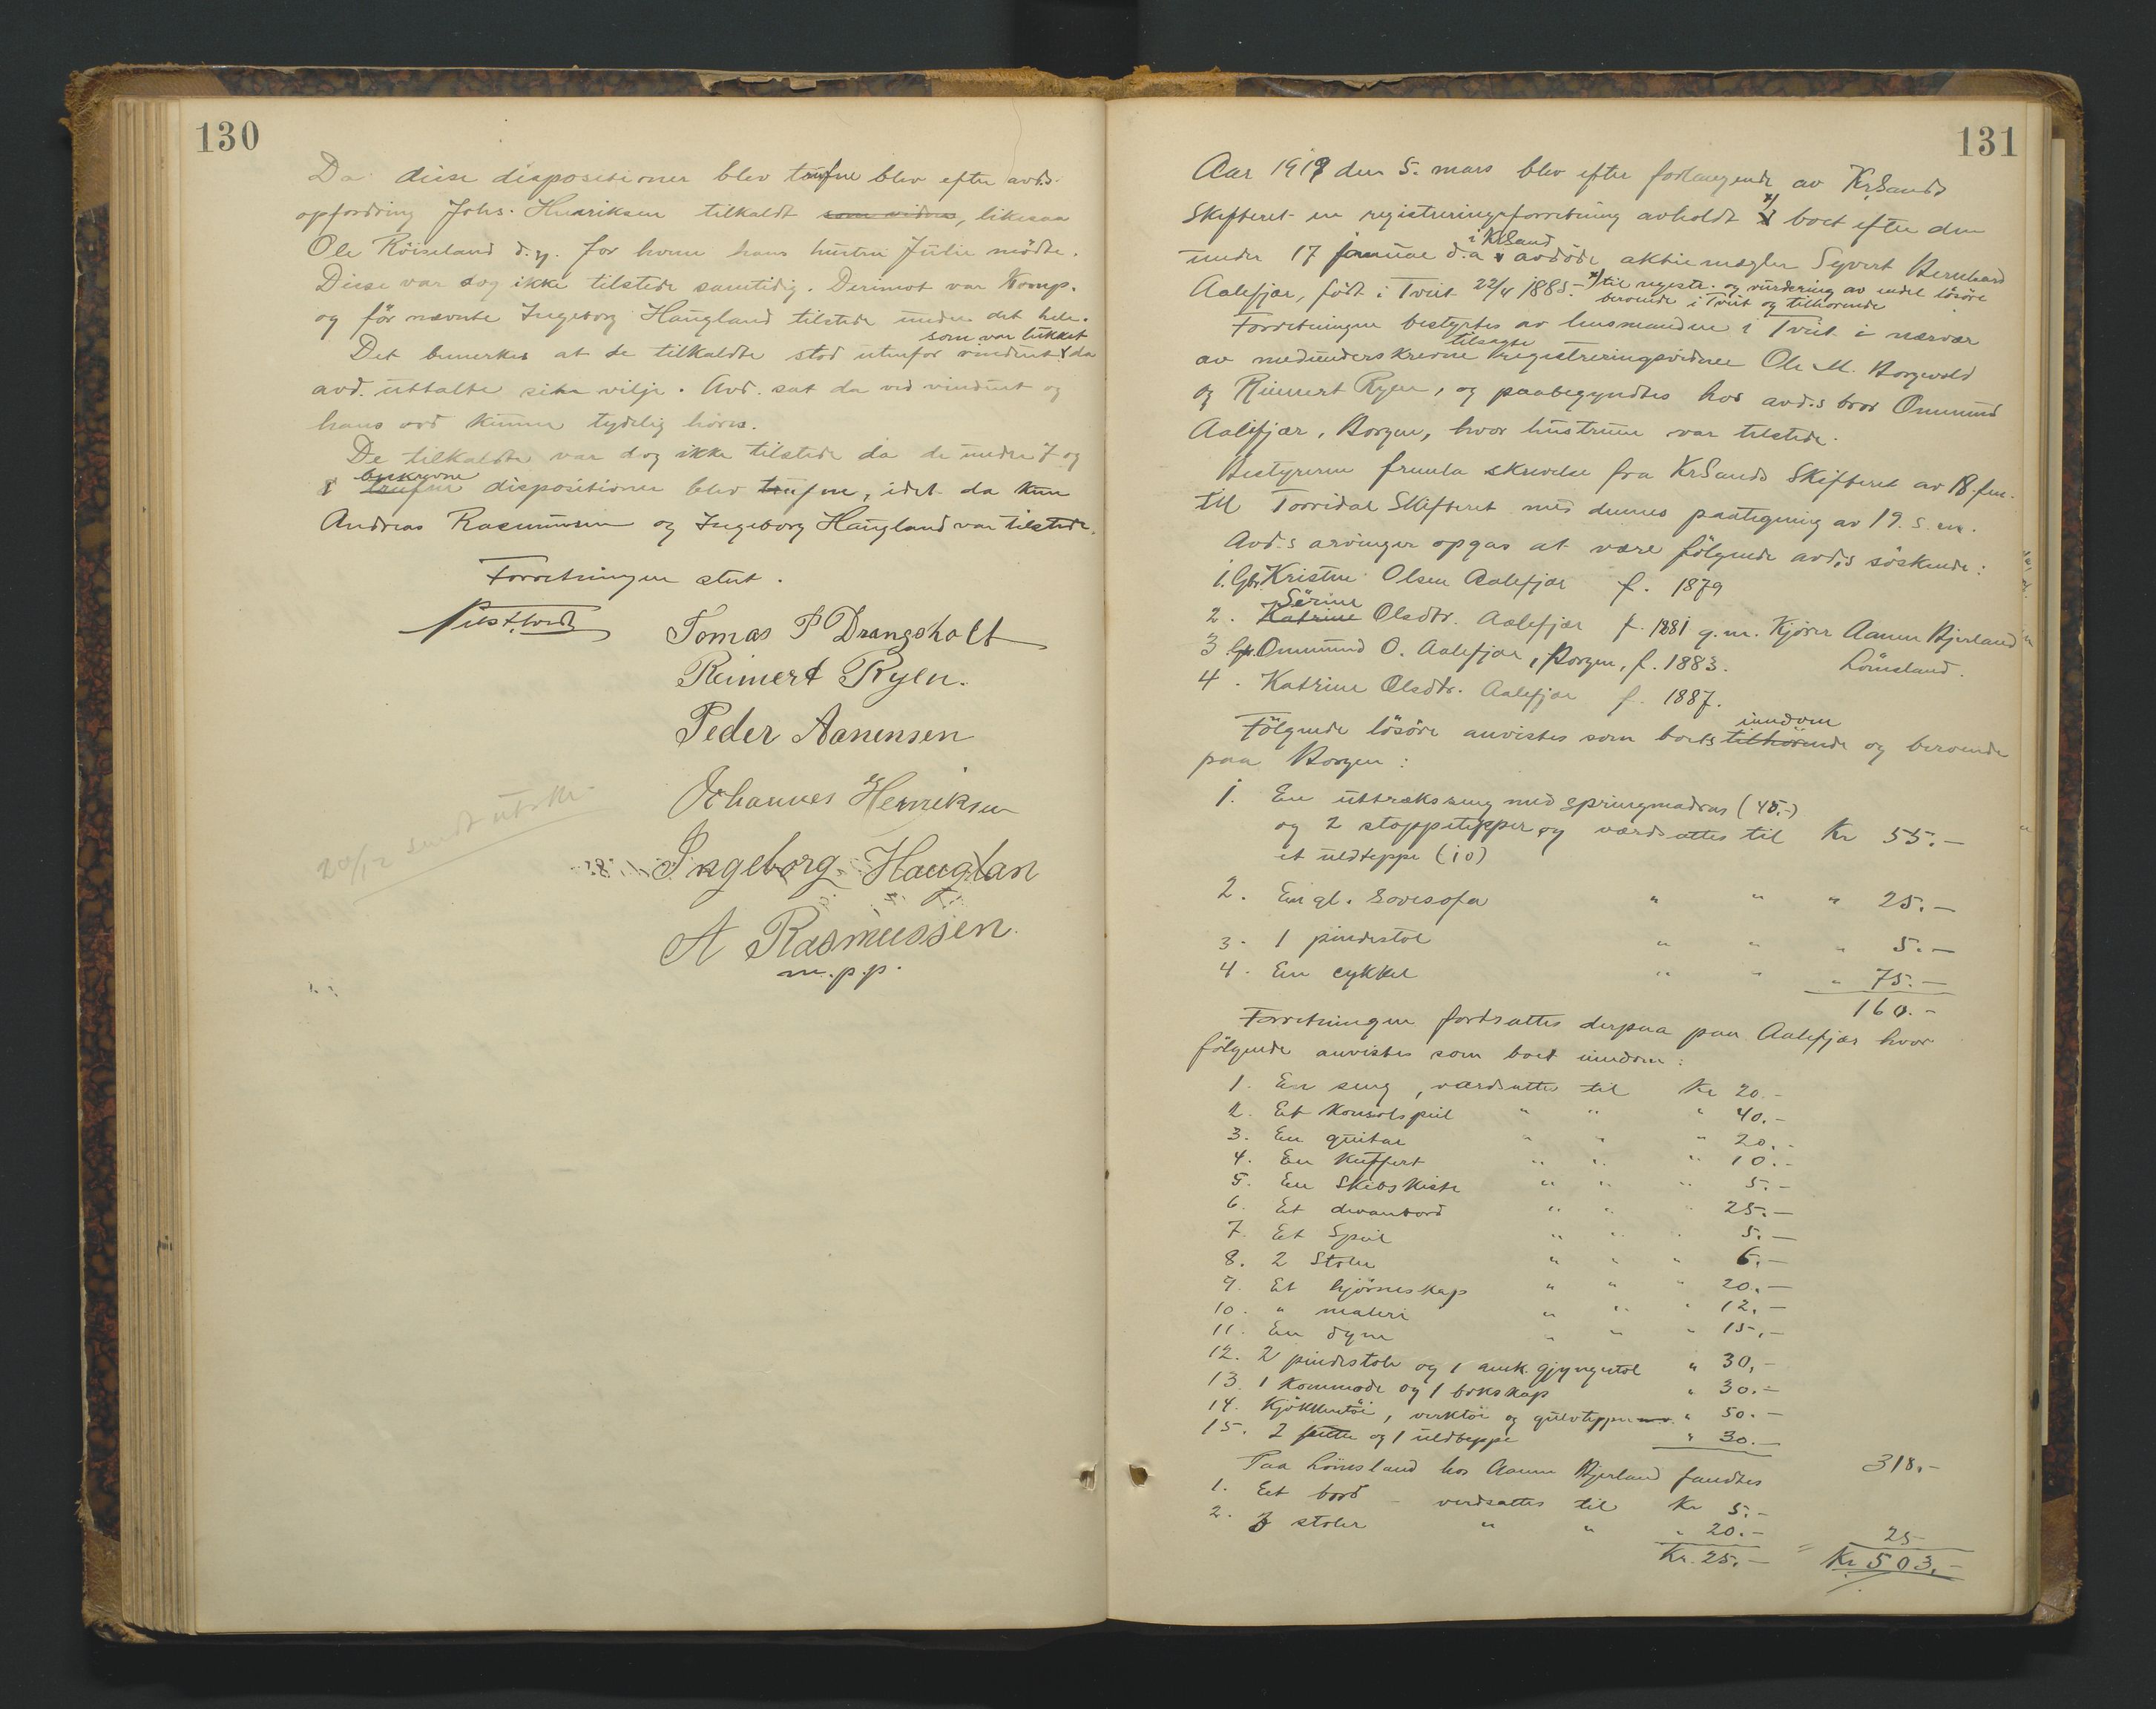 130
Da disse dispositioner blev trufne blev efter avd.s
opfordring Johs. Henriksen tilkaldt som vidne, likesaa
Ole Röiseland d.y. for hvem hans hustru Julie mödte.
Disse var dog ikke tilstede samtidig. Derimot var Komp.
og för nævnte Ingeborg Haugland tilstede under det hele.
som var lukket
Det bemerkes at de tilkaldte stod utenfor vinduet da
avd. uttalte sin vilje. Avd. sat da ved vinduet og
hans ord kunne tydelig höres.
De tilkaldte var dog ikke tilstede da de under 7 og
beskrevne
8 trufne dispositioner blev trufne, idet da kun
Andreas Rasmussen og Ingeborg Haugland var tilstede.
Forretningen slut.
Tomas P Drangsholt
Reimert Ryen.
Peder Aanensen
Johannes Henriksen
20/12 sendt utskr.
Ingeborg Hauglan
A Rasmussen.
m.p.p.
131
Aar 1919 den 5. mars blev efter forlangende av KrSands
Skifteret en registreringsforretning avholdt x) i boet efter den
i KrSand
under 17 januar d.a avdöde aktiemægler Syvert Bernhard
Aalefjær, födt i Tveit 22/4 1885.- x) til registr. og vurdering av endel lösöre
beroende i Tveit og tilhörende
Forretningen bestyrtes av lensmanden i Tveit i nærvær
tilsagte
av medunderskrevne registreringsvidner Ole M. Borgevold
og Reimert Ryen, og paabegyndtes hos avd.s bror Ommund
Aalefjær, Borgen, hvor hustruen var tilstede.
Bestyreren fremla skrivelse fra KrSands Skifteret av 18. f.m.
til Torridal Skifteret med dennes paategning av 19. s.m.
Avd.s arvinger opgas at være fölgende avd.s söskende:
1. Gbr. Kristen Olsen Aalefjær f. 1879
Serine
2. Katrine Olsdtr. Aalefjær f. 1881 g.m. Kjörer Aanen Bjerland
3. Gbr. Ommund O. Aalefjær, Borgen, f. 1883. Lömsland.
4. Katrine Olsdtr. Aalefjær f. 1887.
eiendom
Fölgende lösöre anvistes som boets tilhörende og beroende
paa Borgen:
1. En uttræksseng med springmadras (45.-)
og 2 stoppetepper og værdsattes til Kr 55.-
et uldteppe (10)
2. En gl. sovesofa " " " 25.-
3. 1 pindestol " " " 5.-
4. En cykkel " " " 75.-
160.-
Forretningen fortsattes derpaa paa Aalefjær hvor
fölgende anvistes som boets eiendom:
1. En seng, værdsattes til Kr 20.-
2. Et Konsolspeil " " " 40.-
3. En guitar " " " 20.-
4. En Kuffert " " " 10.-
5. En Skibskiste " " " 5.-
6. Et divanbord " " " 25.-
7. Et Speil " " " 5.-
8. 2 Stoler " " " 6.-
9. Et hjörneskap " " " 20.-
10. " maleri " " " 12.-
11. En dyne " " " 15.-
12. 2 pindestole og 1 amk. gjyngestol " 30,-
13. 1 Kommode og 1 bokskap " 30.-
14. Kjökkentöi, verktöi og gulvtepper " 50.-
15. 2 puter og 1 uldteppe " 30.-
318.-
Paa Lömsland hos Aanen Bjerland fandtes
1. Et bord - verdsattes til Kr 5.-
2. 3 stoler " " " 20.-
25
Kr. 25.- = Kr 503.-